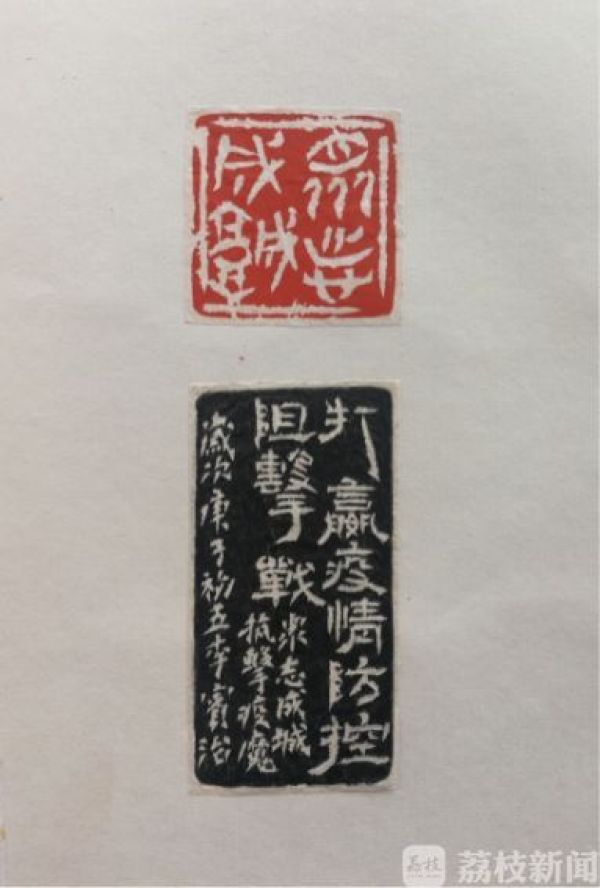 眾志
成城
打贏疫情防控
阻擊戰
眾志成城
抗擊疫魔
歲次庚子初五李治
荔枝
荔枝新闻